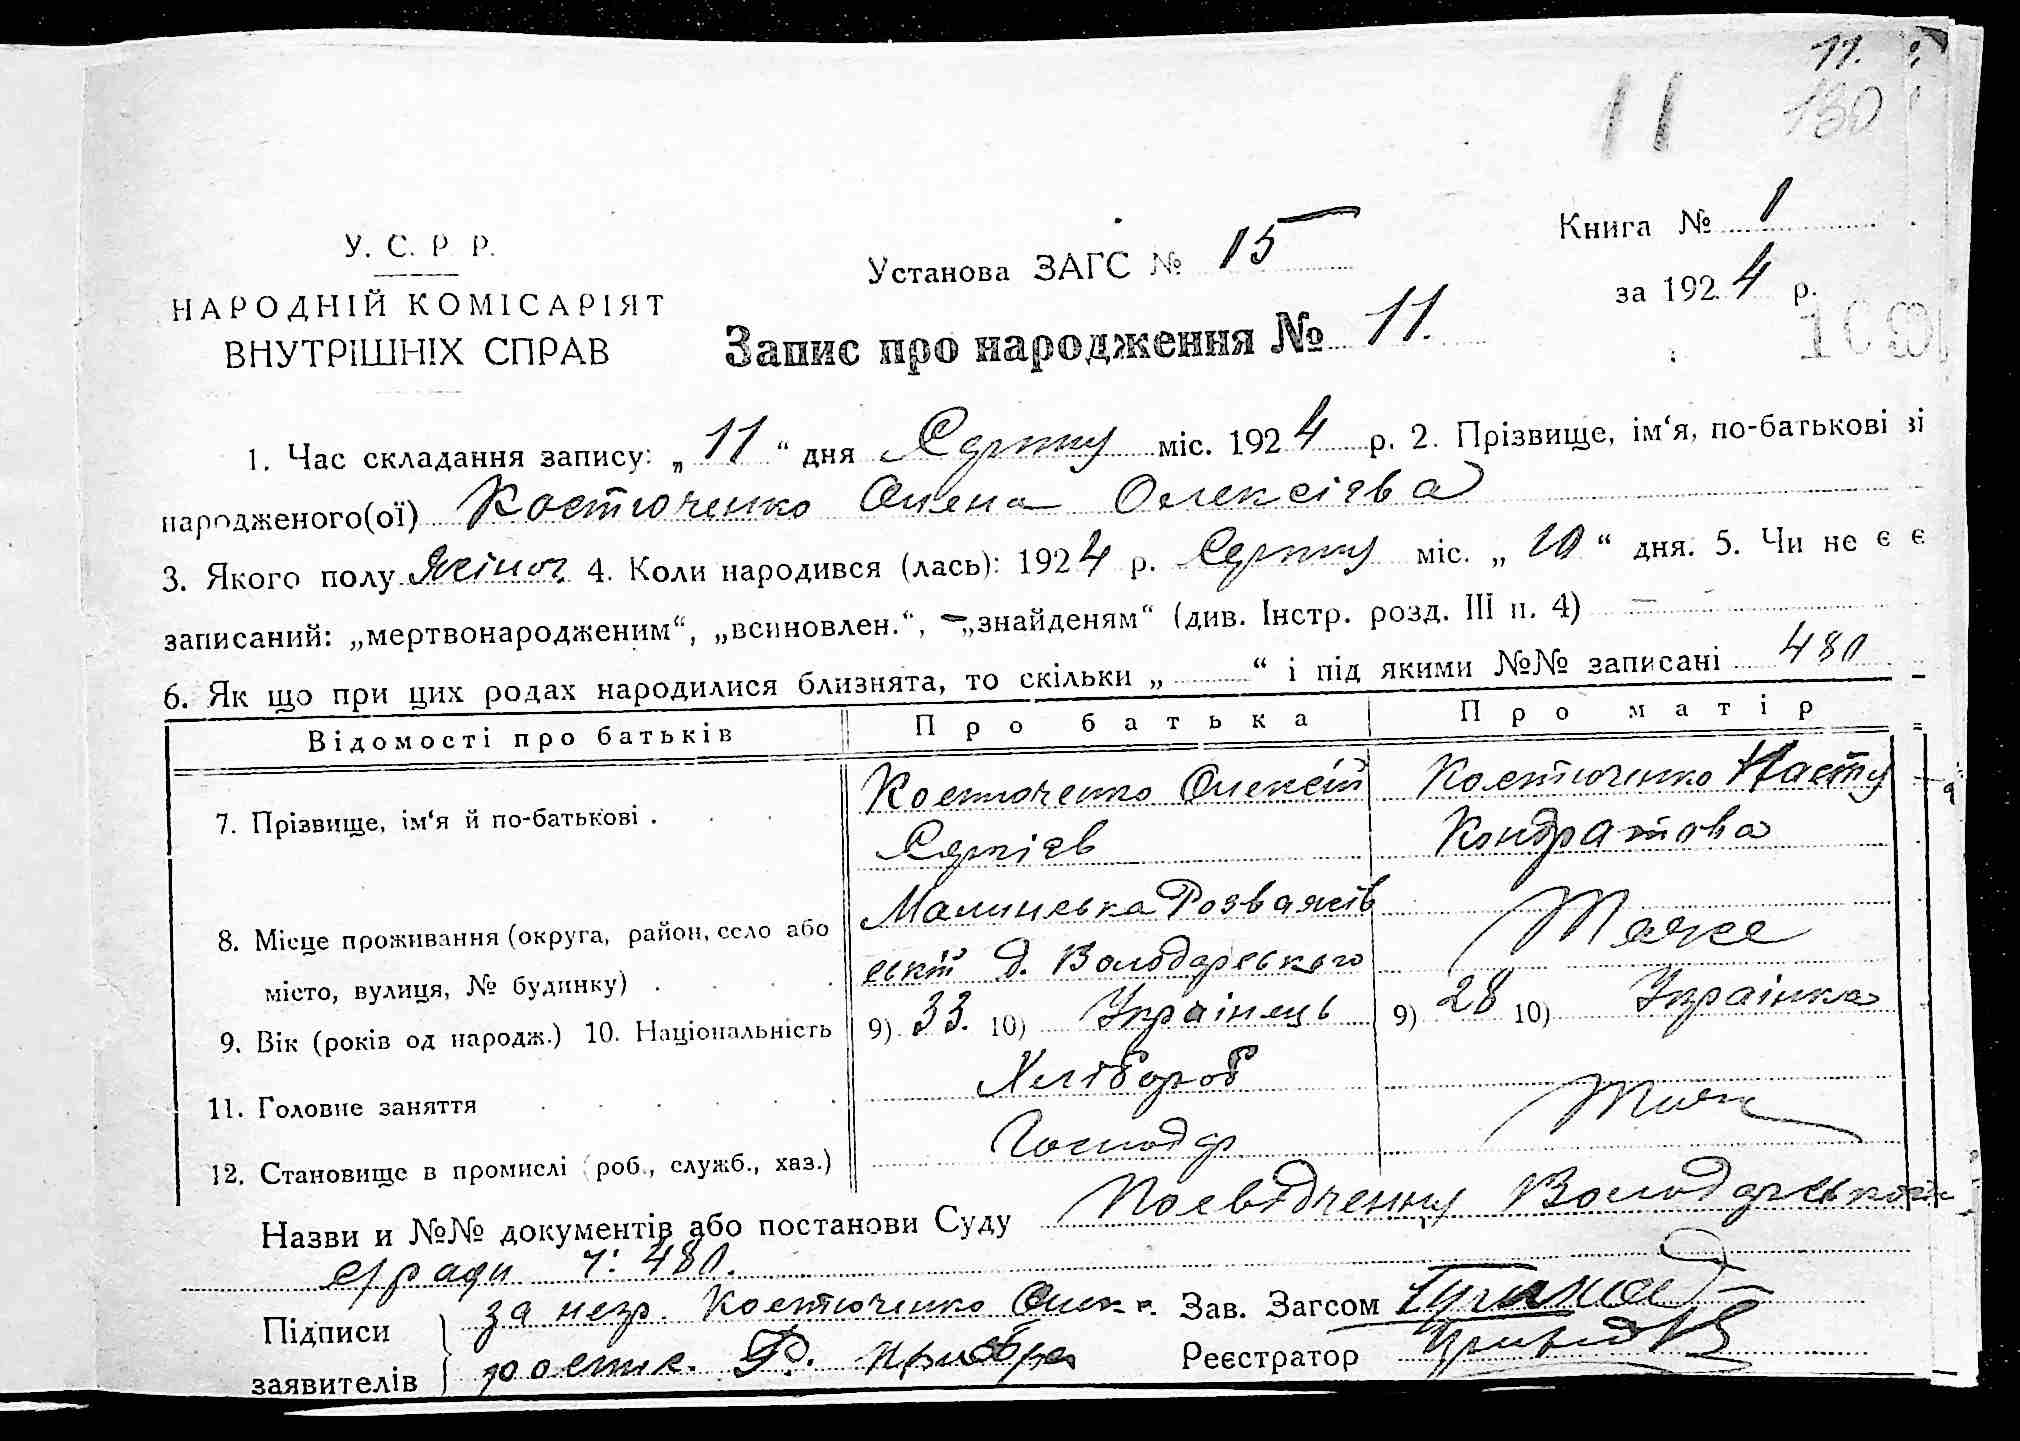 11.
11 130
У. С. Р. Р.
НАРОДНІЙ КОМІСАРІЯТ
ВНУТРІШНІХ СПРАВ
Установа ЗАГС № 15
Книга № 1
за 1924 р.
Запис про народження № 11.
1. Час складання запису: „ 11 “ дня Серпня міс. 1924 р. 2. Прізвище, ім‘я, по-батькові
народженого(ої) Костюченко Олена Олексієва
3. Якого полу Жіноч. 4. Коли народився (лась): 1924 р. Серпня міс. „ 10 “ дня. 5. Чи не є
записаний: „мертвонародженим“, „всиновлен.“, „знайденям“ (див. Інстр. розд. III п. 4) —
6. Як що при цих родах народилися близнята, то скільки „ “ і під якими №№ записані 480
Відомості про батьків Про батька Про матір
7. Прізвище, ім‘я й по-батькові . Костюченко Олексій Костюченко Настя
Сергієв Кондратова
8. Місце проживання (округа, район, село або Малинська Розважів
місто, вулиця, № будинку) . ській д. Володарського Також
9. Вік (років од народж.) 10. Національність 9) 33. 10) Українець 9) 28 10) Українка
11. Головне заняття Хлібороб
12. Становище в промислі (роб., служб., хаз.) Господар
Назви и №№ документів або постанови Суду Посвідчення Володарської
с/ради ч: 480.
Підписи за негр. Костюченко Олек Зав. Загсом
заявителів Реєстратор